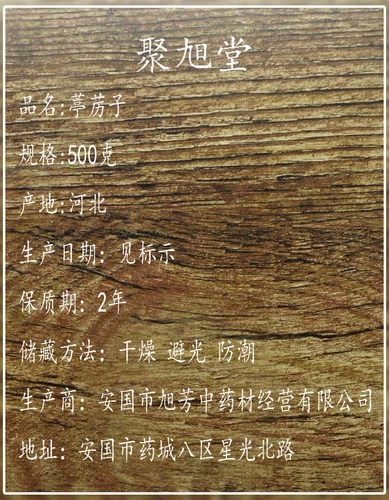 聚旭堂
品名:葶苈子
规格:500克
产地:河北
生产日期: 见标示
保质期: 2年
储藏方法: 干燥 避光 防潮
生产商: 安国市旭芳中药材经营有限公司
地址: 安国市药城八区星光北路